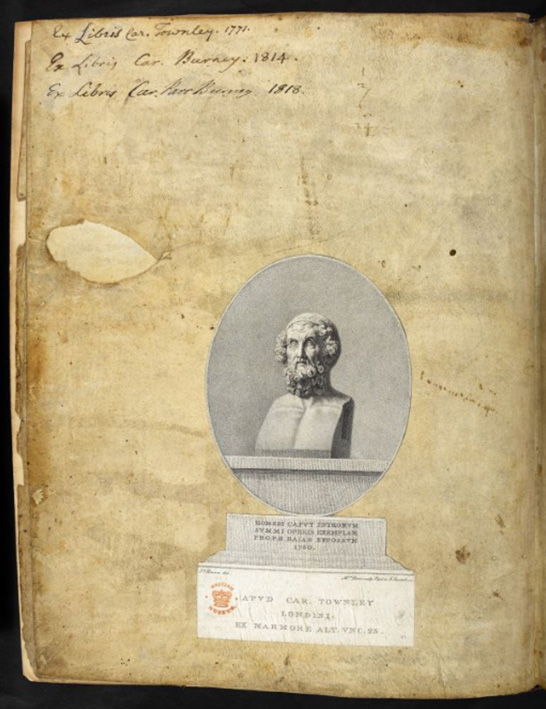 Ex Libris Car. Townley. 1771.
Ex Libris Car. Burney. 1814.
Ex Libris Car. Burney 1818.
HOMERI CAPVT INTEGRVM
SVMMI OPERIS EXEMPLAR
PROPE BAIAS EFFOSSVM
1780.
APVD CAR. TOWNLEY
LONDINI.
EX MARMORE ALT. VNC. 25.